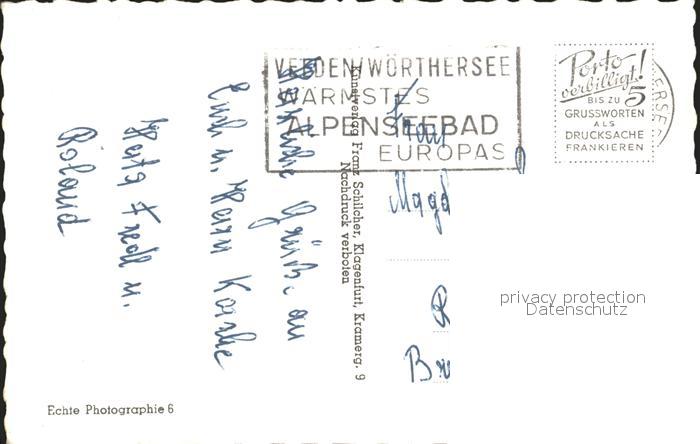 VELDEN/WÖRTHERSEE
WÄRMSTES
ALPENSEEBAD
EUROPAS
Porto
verbilligt!
BIS ZU 5
GRUSSWORTEN
ALS
DRUCKSACHE
FRANKIEREN
Kunstverlag Franz Schilcher, Klagenfurt, Kramerg. 9
Nachdruck verboten
Herzliche Grüße an
Euch u. Herrn
Fredl u.
Roland
Frau
Magd
R
Br
privacy protection
Datenschutz
Echte Photographie 6